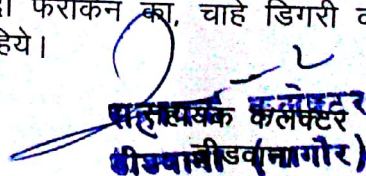 फरीकन का, चाहे डिगरी
हिये।
सहायक कलक्टर
डीडवाना (नागौर)